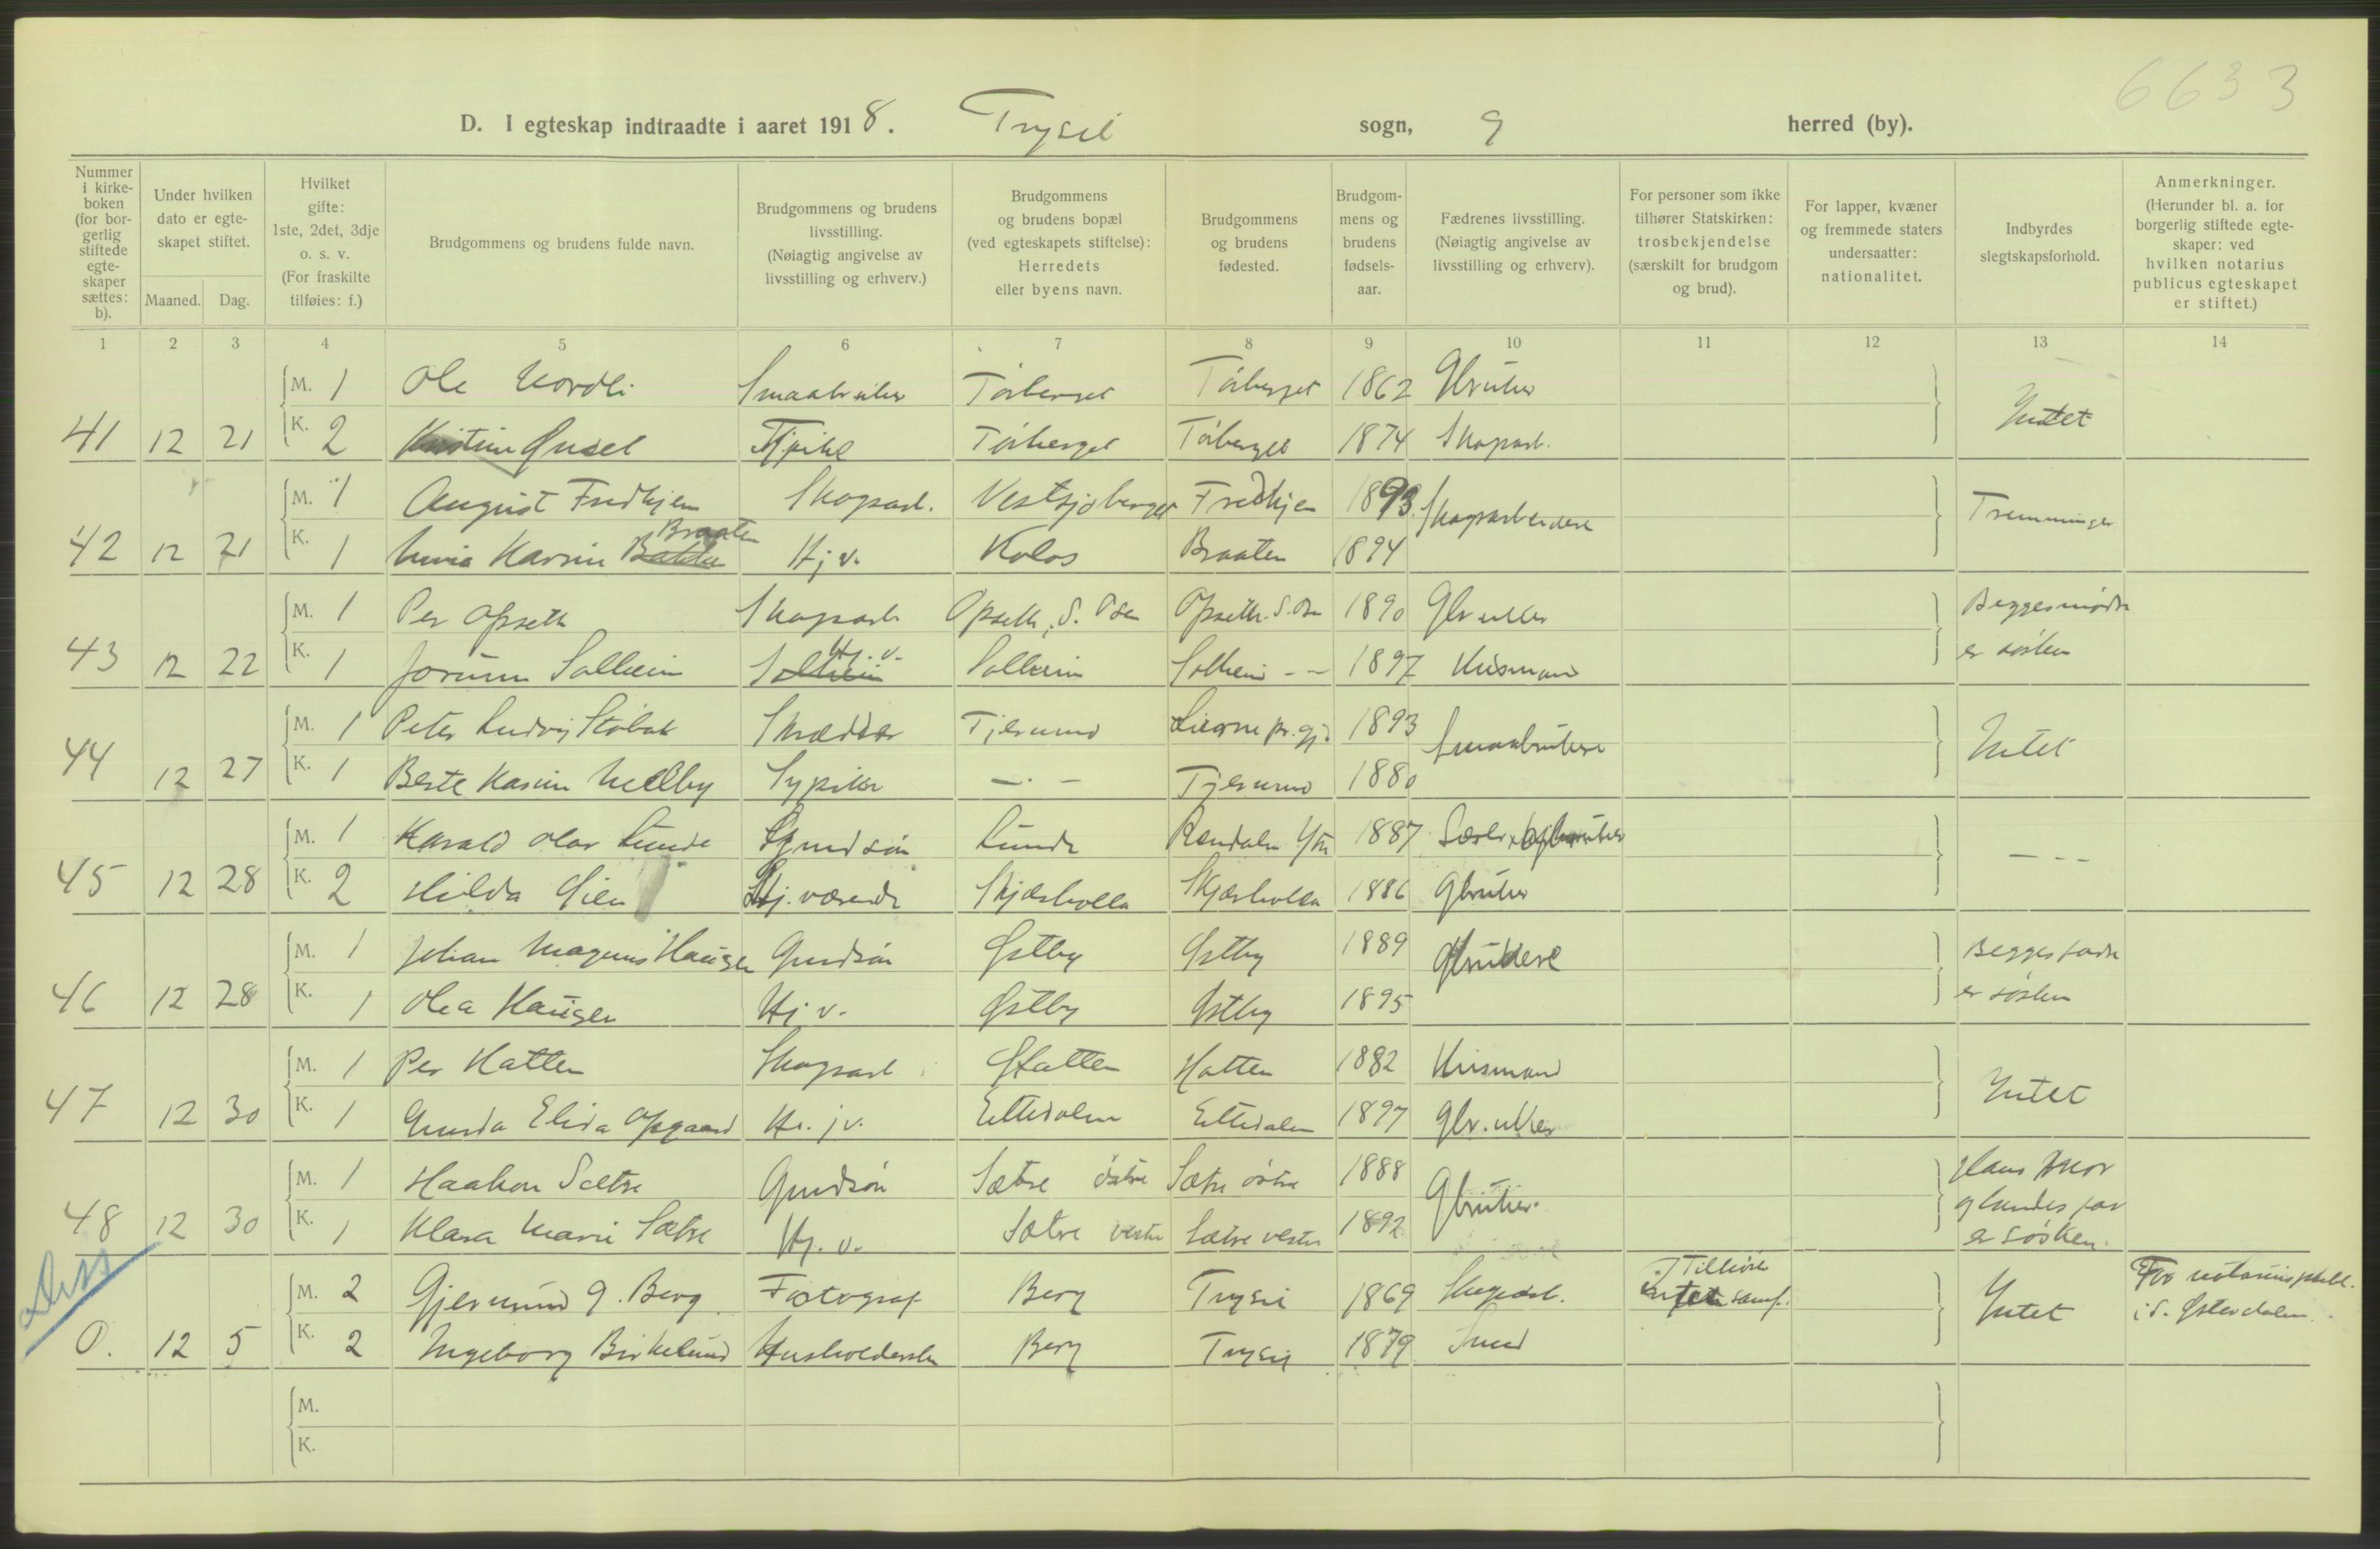 6633
D. I egteskap indtraadte i aaret 1918. Trysil sogn, 9 herred (by).
Nummer i kirke-boken (for bor-gerlig stiftede egte-skaper sættes: b).
Under hvilken dato er egte-skapet stiftet.
Maaned. Dag.
Hvilket gifte: 1ste, 2det, 3dje o. s. v. (For fraskilte tilføies: f.)
Brudgommens og brudens fulde navn.
Brudgommens og brudens livsstilling. (Nøiagtig angivelse av livsstilling og erhverv.)
Brudgommens og brudens bopæl (ved egteskapets stiftelse): Herredets eller byens navn.
Brudgommens og brudens fødested.
Brudgom-mens og brudens fødsels-aar.
Fædrenes livsstilling. (Nøiagtig angivelse av livsstilling og erhverv).
For personer som ikke tilhører Statskirken: trosbekjendelse (særskilt for brudgom og brud).
For lapper, kvæner og fremmede staters undersaatter: nationalitet.
Indbyrdes slegtskapsforhold.
Anmerkninger. (Herunder bl. a. for borgerlig stiftede egte-skaper: ved hvilken notarius publicus egteskapet er stiftet.)
1 2 3 4 5 6 7 8 9 10 11 12 13 14
M. 1 Ole Nordli Smaabruker Törberget Törberget 1862 Gbruker
41 12 21 K. 2 Kristine Törberget Törberget 1874 Skogarb. Intet
M. 1 August Fredhjem Skogarb. Vestsjøberget Fredhjem 1893 Skogarbeidere Tremninger
42 12 21 K. 1 Karin Braaten Hj. v. Kolos Braaten 1894
M. 1 Per Opseth Skogarb Opseth, S. Osen Opseth. S. Osen 1890 Gbruker Begges mødre
43 12 22 K. 1 Jorunn Solheim Hj. v. Solheim Solheim - - 1897 Husmand er søsken
M. 1 Peter Ludvig Skrædder Tjerumo 1893 Smaabrukere Intet
44 12 27 K. 1 Berte Karin Melby Sypike - . - Tjerumo 1880
M. 1 Harald Olav Lunde Grndsøn Lunde Rendalen 1887
45 12 28 K. 2 Hilda Hj. værende Skjærholla Skjærholla 1886 Gbruker - - -
M. 1 Johan Magnus Haugen Grndsøn Østby Østby 1889 Gbrukere Begges fædre
46 12 28 K. 1 Olea Haugen Hj v. Østby Østby 1895 er søsken
M. 1 Per Hatten Skogarb Hatten Hatten 1882 Husmand
47 12 30 K. 1 Gunda Elida Opgaard H. j v. Eltedalen Eltedalen 1897 Gbr.uker Intet
M. 1 Haakon Sætre Grndsøn Sætre östre Sætre östre 1888 Gbruker. Hans mor
48 12 30 K. 1 Klara Marie Sætre Hj. v. Sætre vestre Sætre vestre 1892 og hendes far
er søsken.
M. 2 Gjermund G. Berg Fotograf Berg Trysil 1869 Skogarb. Tilhører intet samf. Intet For notarius publ.
0. 12 5 K. 2 Ingeborg Birkelund Husholderske Berg Trysil 1879 Smed i S. Østerdalen.
Diss
M.
K.